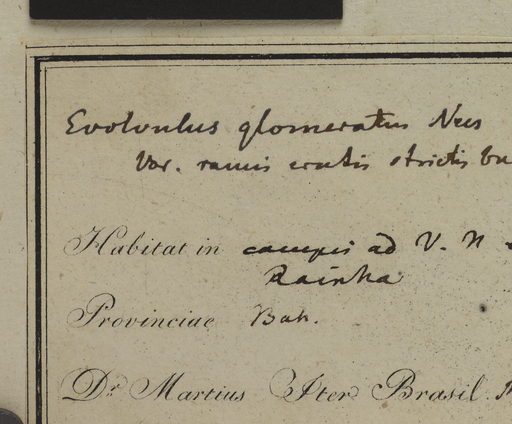 Evolvulus glomeratus Nees
Var. ramis erectis strictis
Habitat in campis ad V. N
Rainha
Provinciae Bah.
Dr. Martius Iter Brasil.